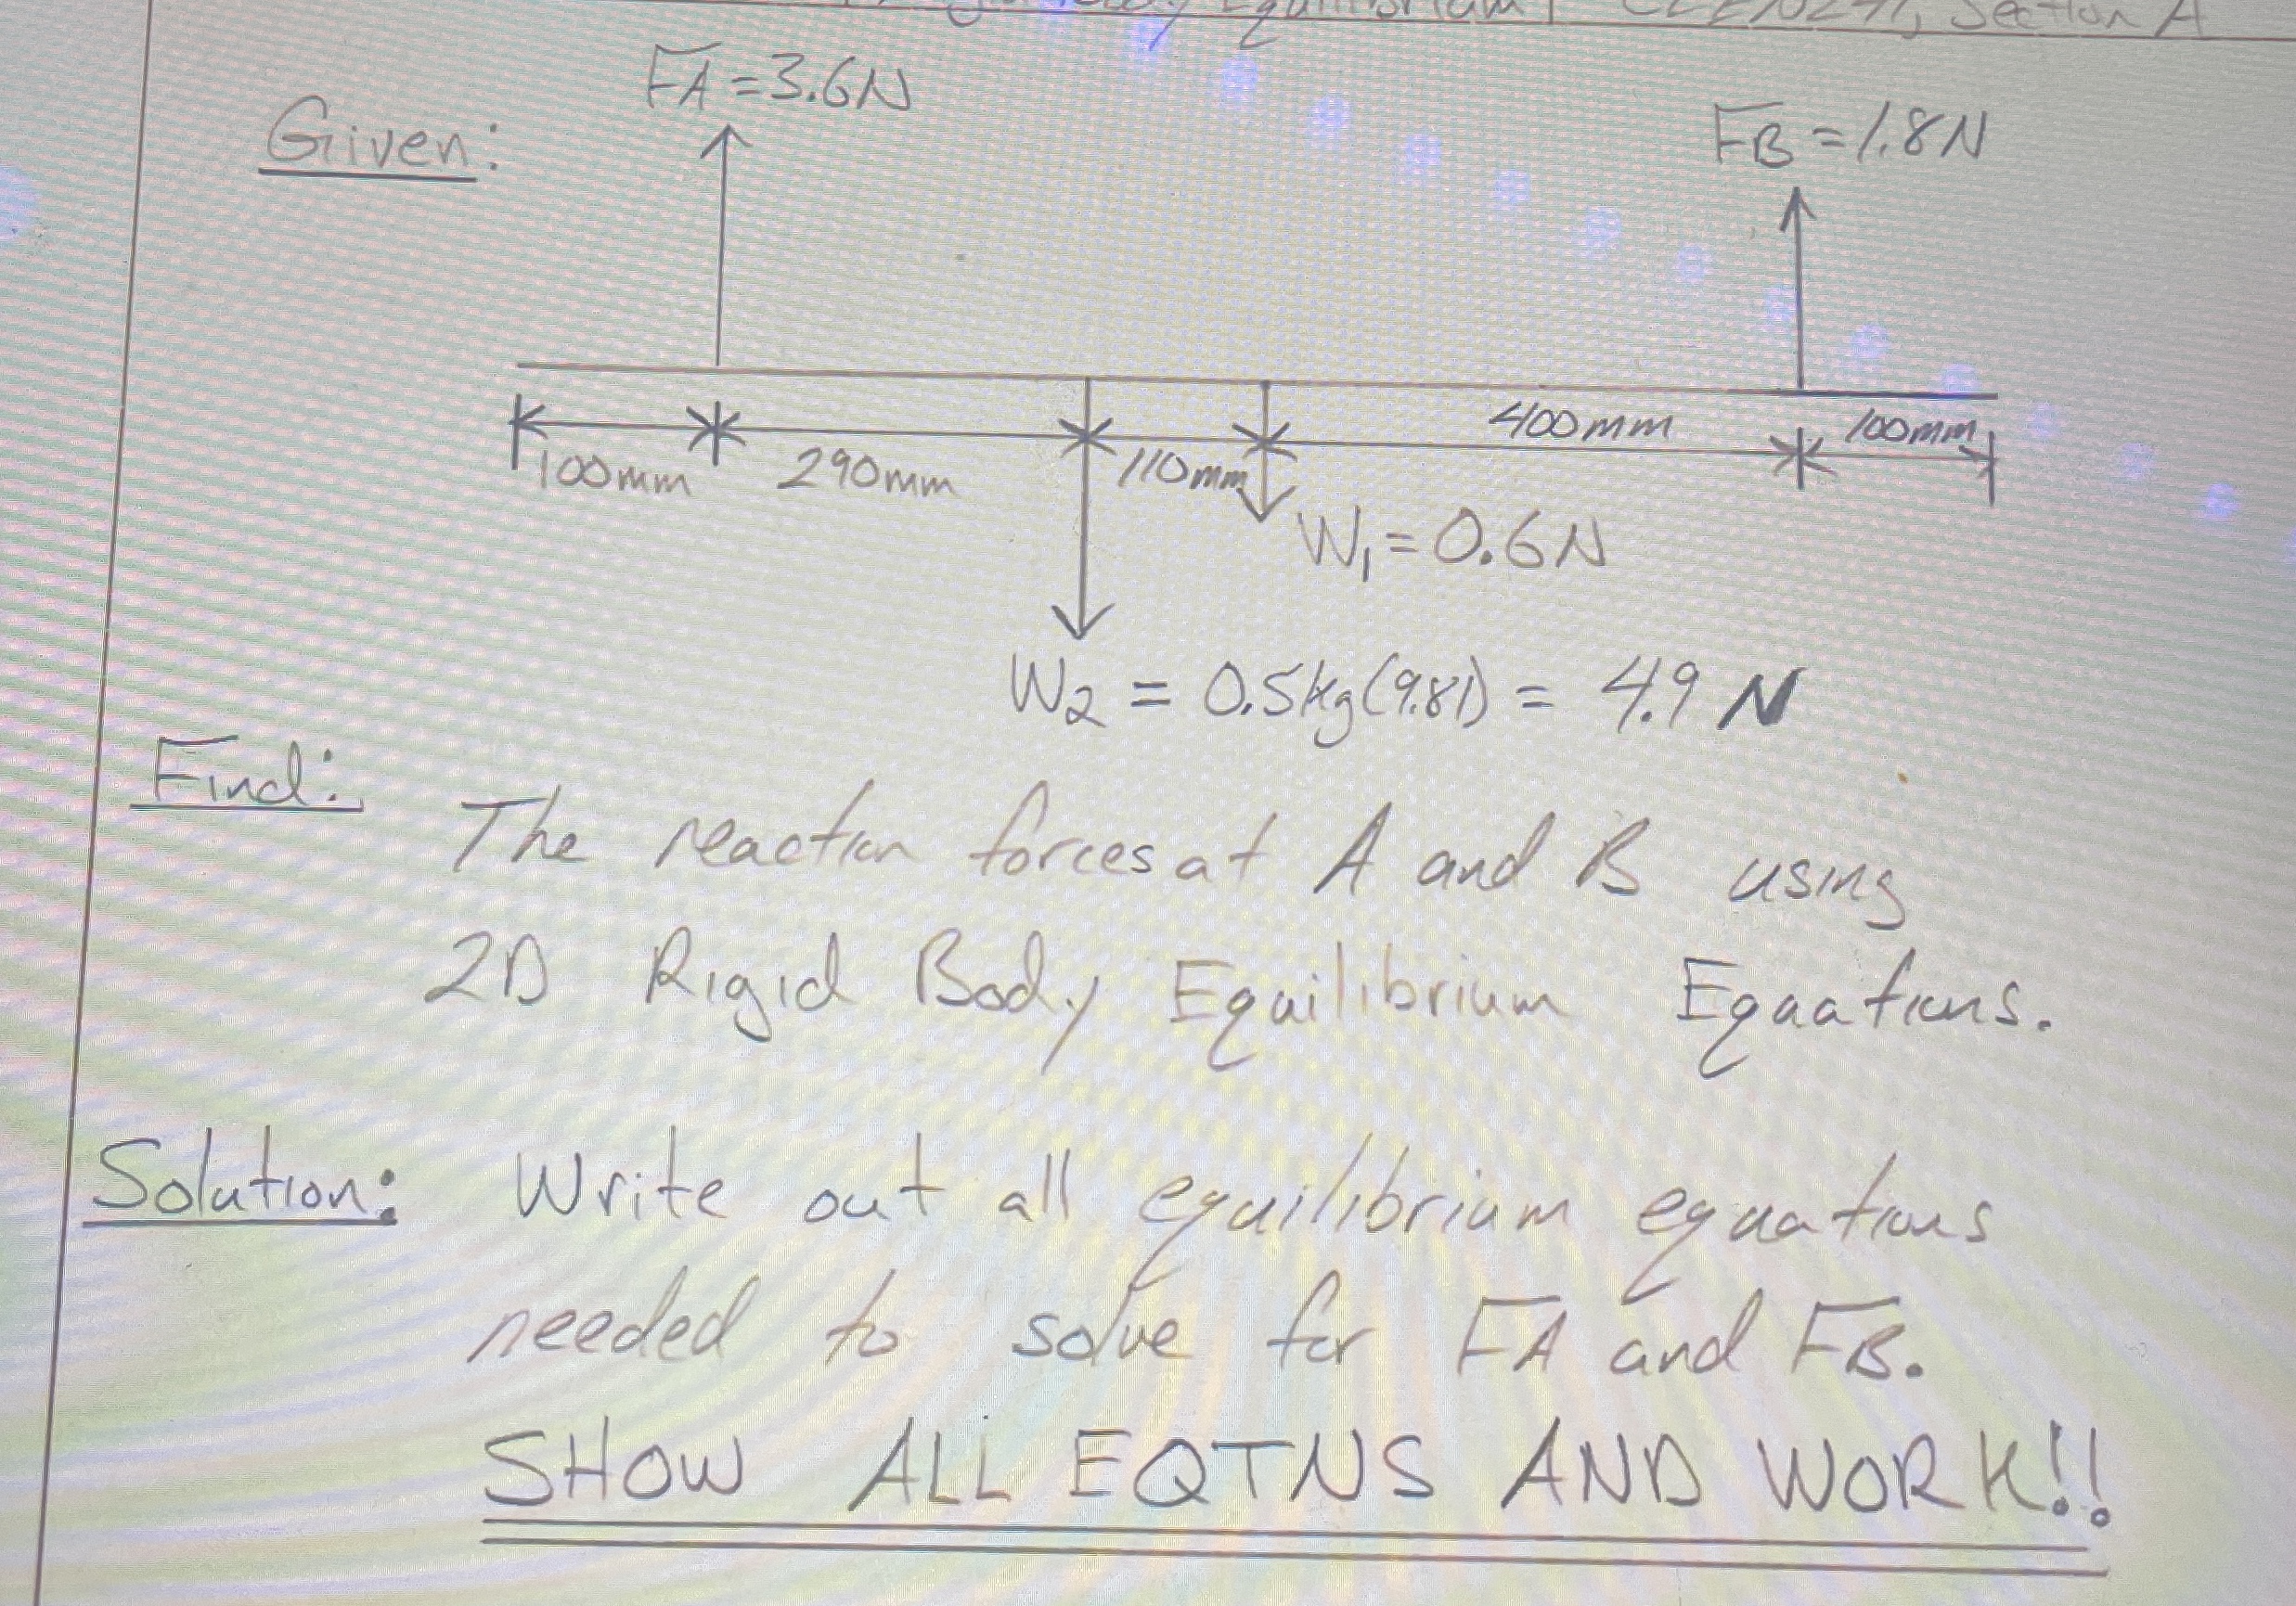 Equilibrium Section A
FA = 3.6N
Given:
FB = 1.8N
400mm
100mm
100mm
290mm
110mm
W1 = 0.6N
W2 = 0.5kg(9.81) = 4.9 N
Find:
The reaction forces at A and B using
2D Rigid Body Equilibrium Equations.
Solution: Write out all equilibrium equations
needed to solve for FA and FB.
SHOW ALL EQTNS AND WORK!!